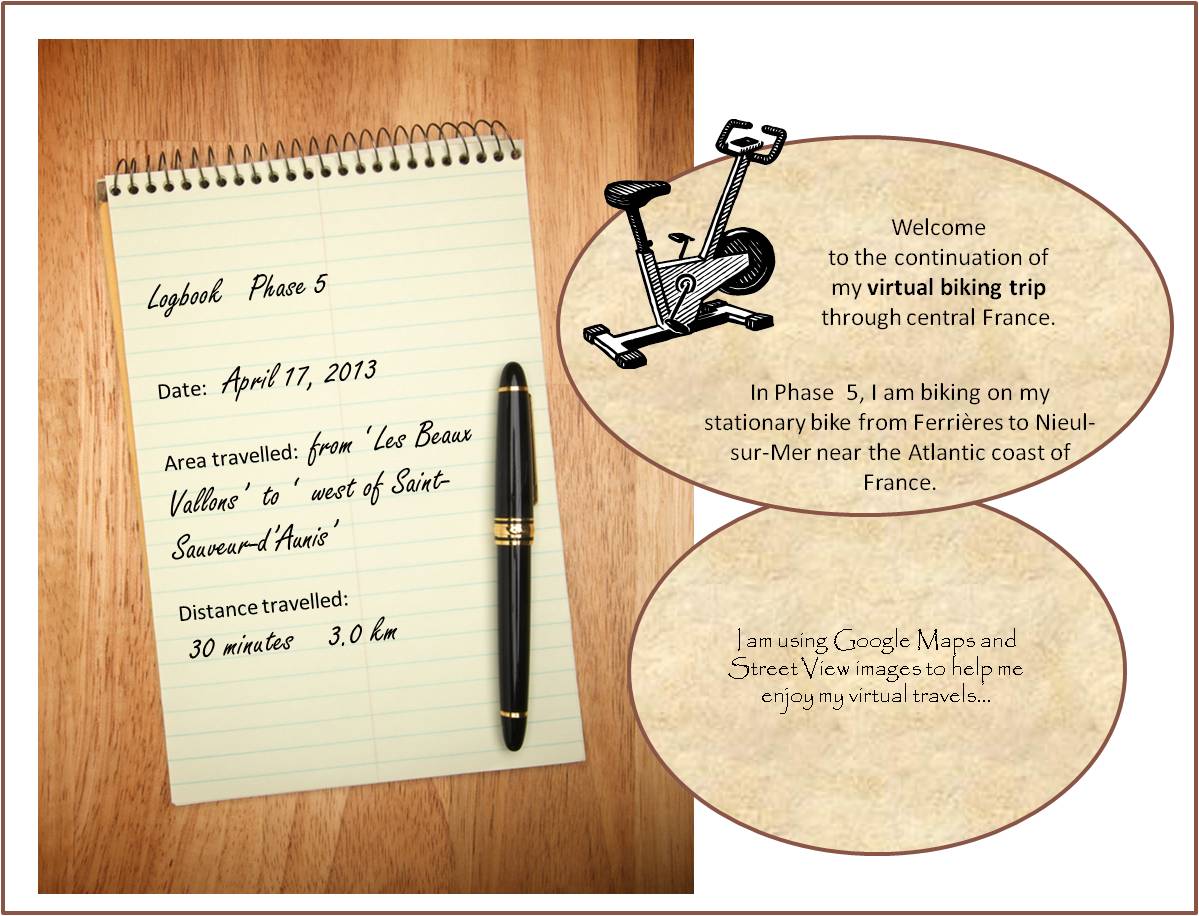 Logbook Phase 5
Date: April 17, 2013
Area travelled: from ‘Les Beaux
Vallons’ to ‘ west of Saint-
Sauveur-d’Aunis’
Distance travelled:
30 minutes 3.0 km
Welcome
to the continuation of
my virtual biking trip
through central France.
In Phase 5, I am biking on my
stationary bike from Ferrières to Nieul-
sur-Mer near the Atlantic coast of
France.
I am using Google Maps and
Street View images to help me
enjoy my virtual travels...